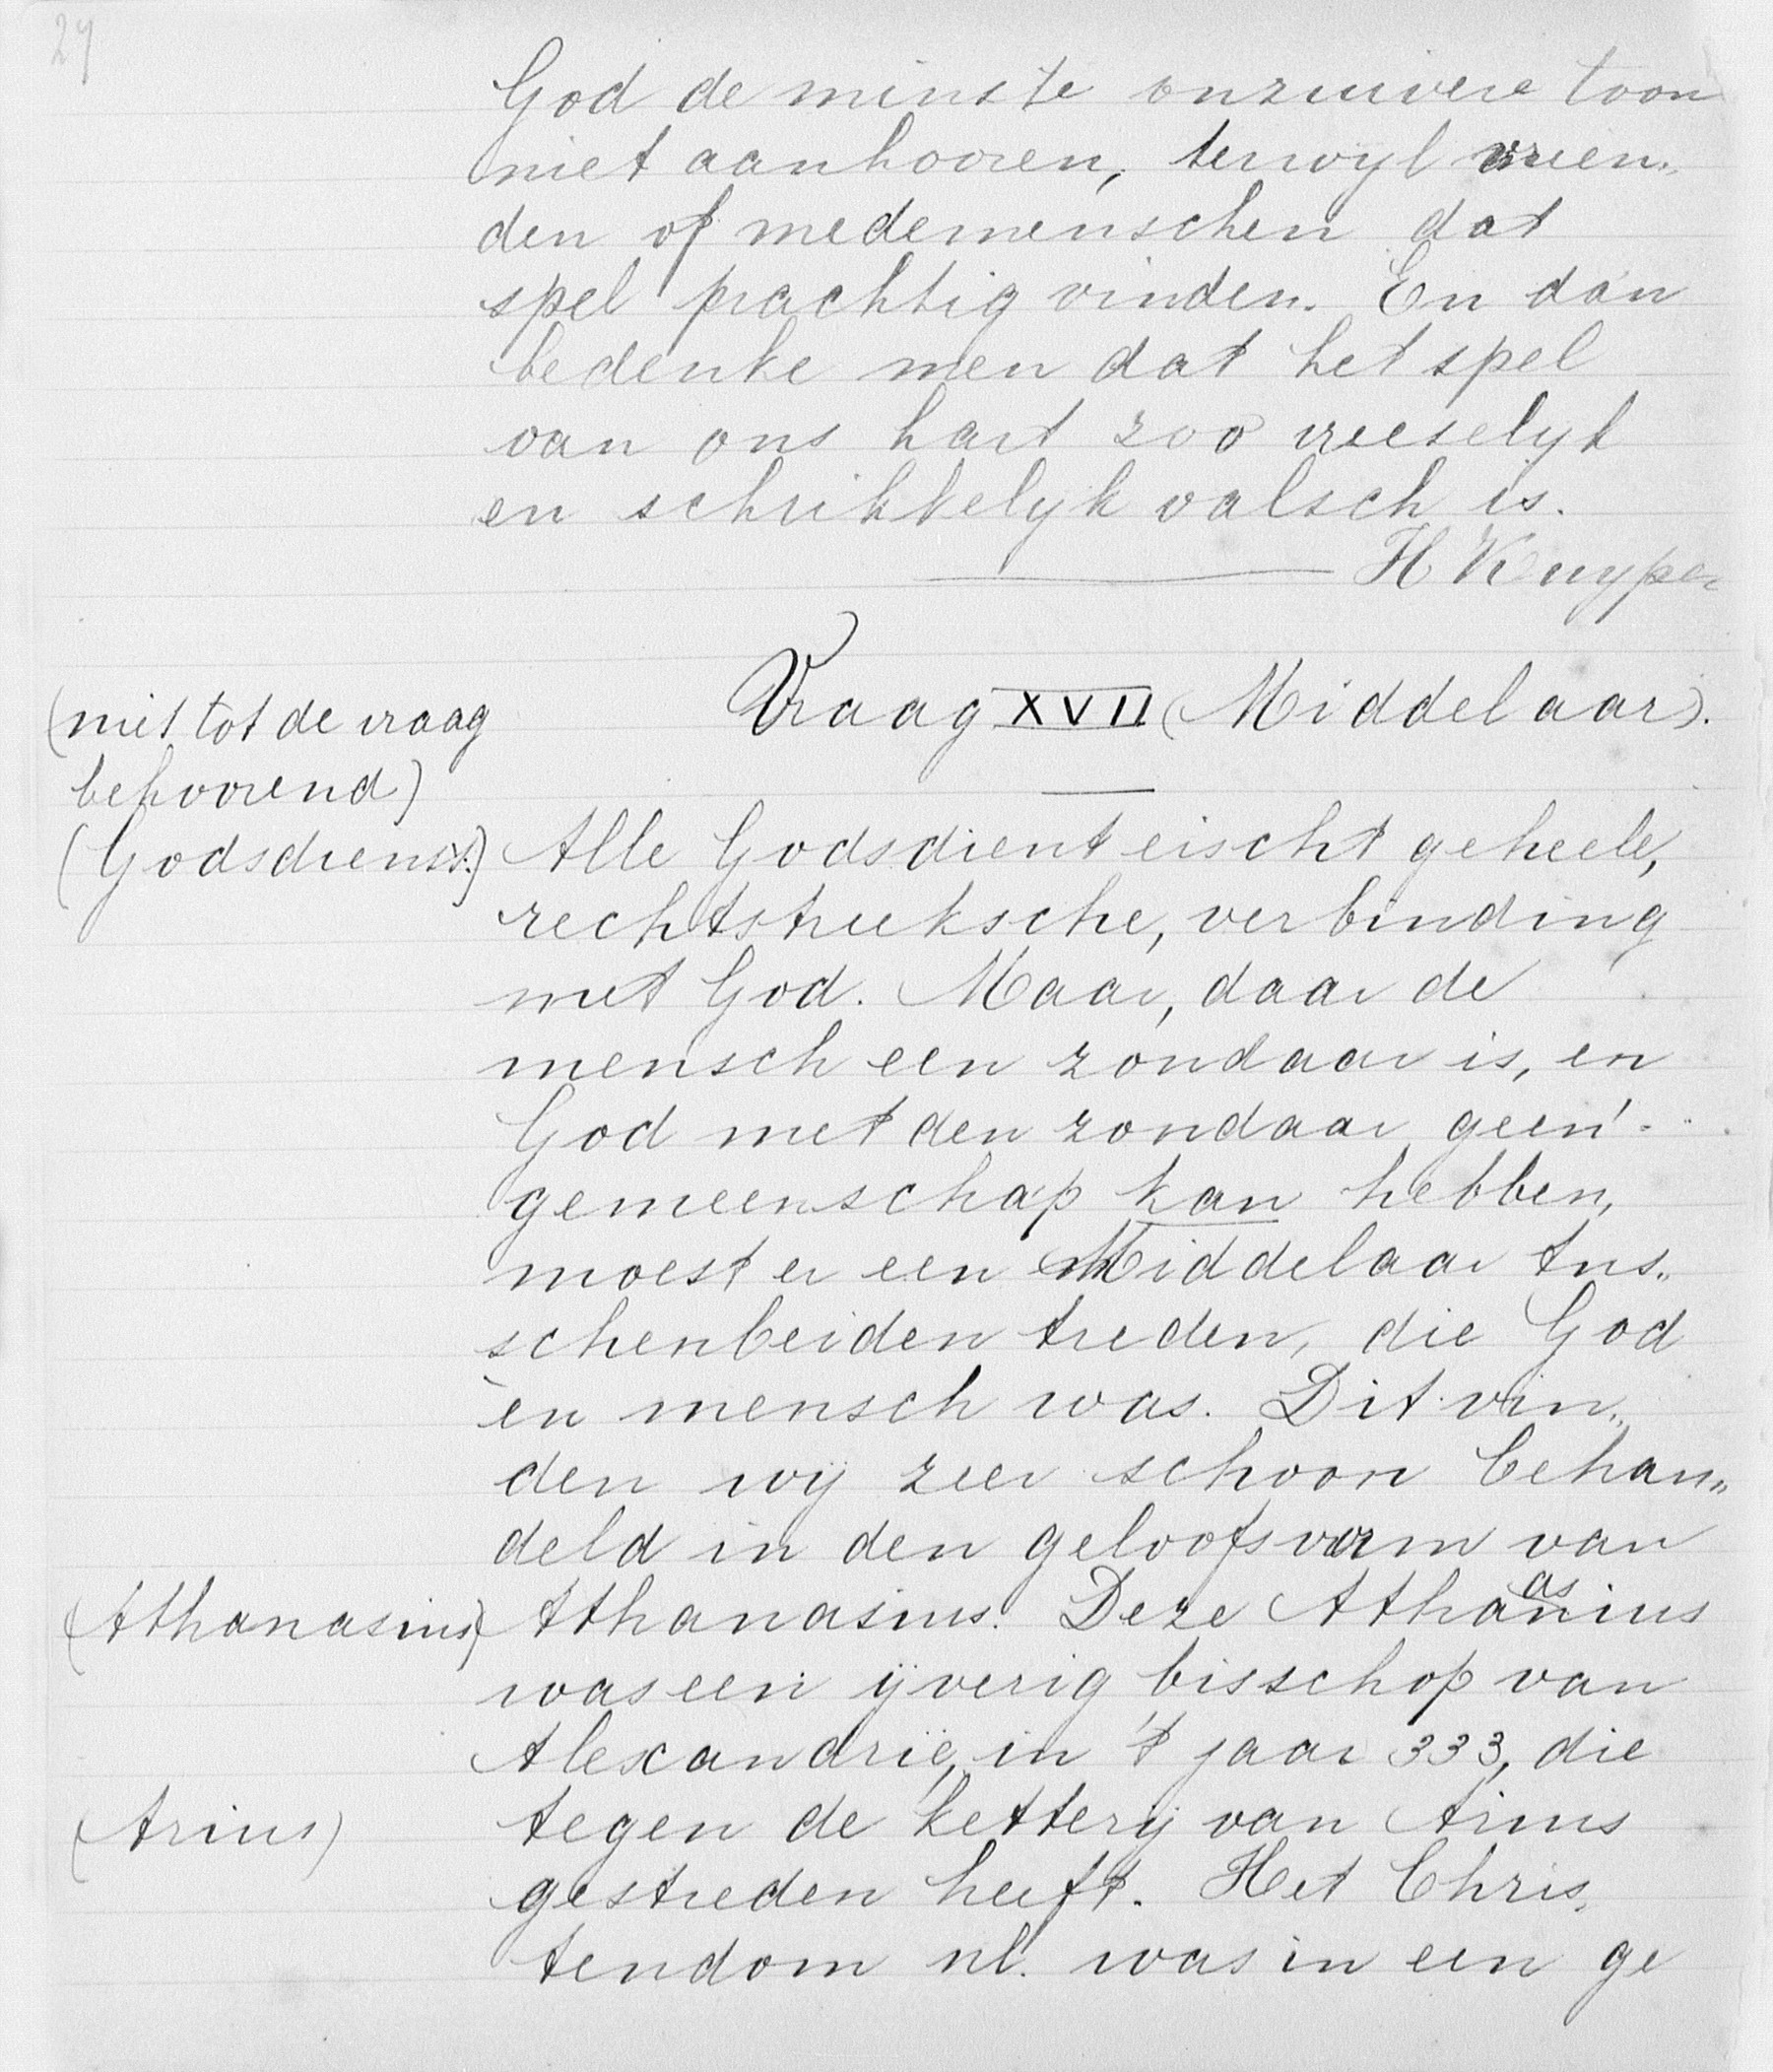 27
God de minste onzuivere toon
niet aanhooren, terwyl vrien„
den of medemenschen dat
spel prachtig vinden. En dan
bedenke men dat het spel
van ons hart zoo vreeselyk
en schrikkelyk valsch is.
H Kuyper
Vraag XVII (Middelaar).
(niet tot de vraag
behoorend)
(Godsdienst.) Alle Godsdient eischt geheele,
rechtstreeksche, verbinding
met God. Maar, daar de
mensch een zondaar is, en
God met den zondaar geen
gemeenschap kan hebben,
moest er een Middelaar tus„
schenbeiden treden, die God
èn mensch was. Dit vin„
den wij zeer schoon behan„
deld in den geloofsvorm van
(Athanasius) Athanasius. Deze Athanasius
was een ijverig bisschop van
Alexandrië, in 't jaar 333, die
(Arius) tegen de kettery van Arius
gestreden heeft. Het Chris„
tendom nl. was in een ge